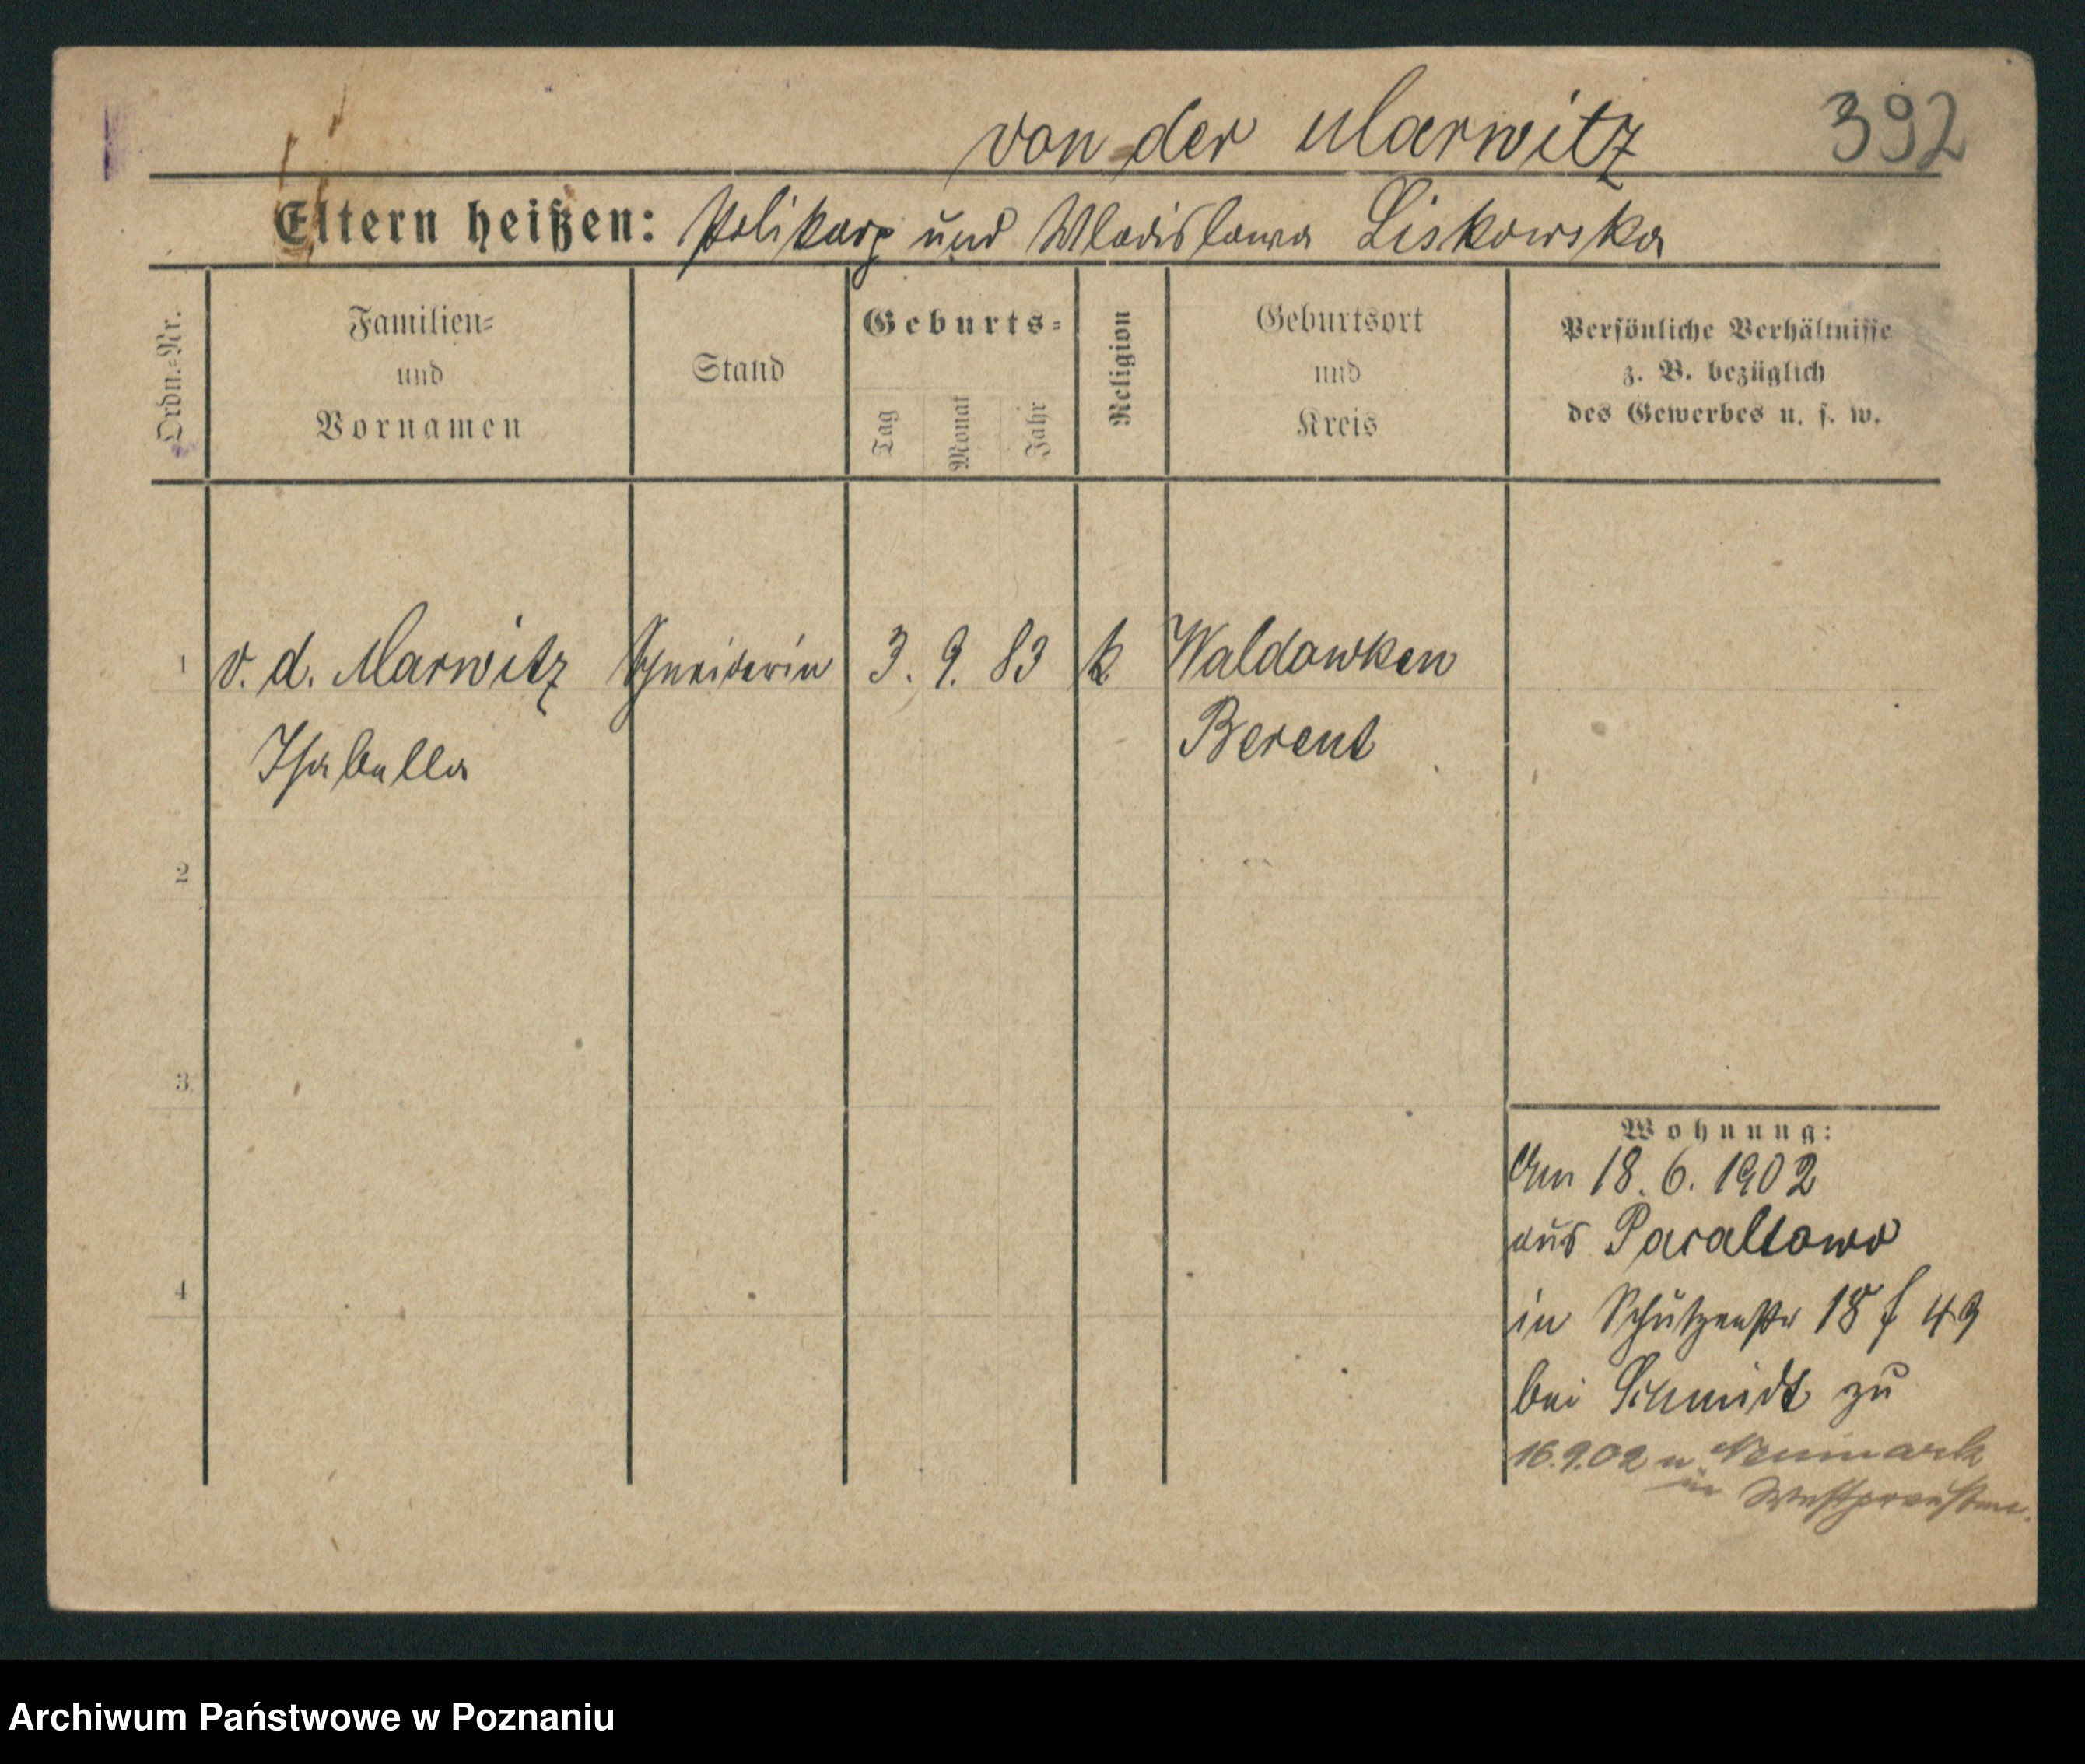 von der Marwitz 392
Eltern heißen: Polikarp und Wladislawa Liskowska
Ordn.=Nr.
Familien=
und
Vornamen
Stand
Geburts=
Tag
Monat
Jahr
Religion
Geburtsort
und
Kreis
Persönliche Verhältnisse
z. B. bezüglich
des Gewerbes u. s. w.
1 v. d. Marwitz Schneiderin 3. 9. 83 k Waldowken
Isabella Berent
2
3.
4
Wohnung:
Am 18. 6. 1902
aus
in Schützenstr 18 f 49
bei Schmidt zu
16.9.02 n Neumark
in Westpreußen.
Archiwum Państwowe w Poznaniu